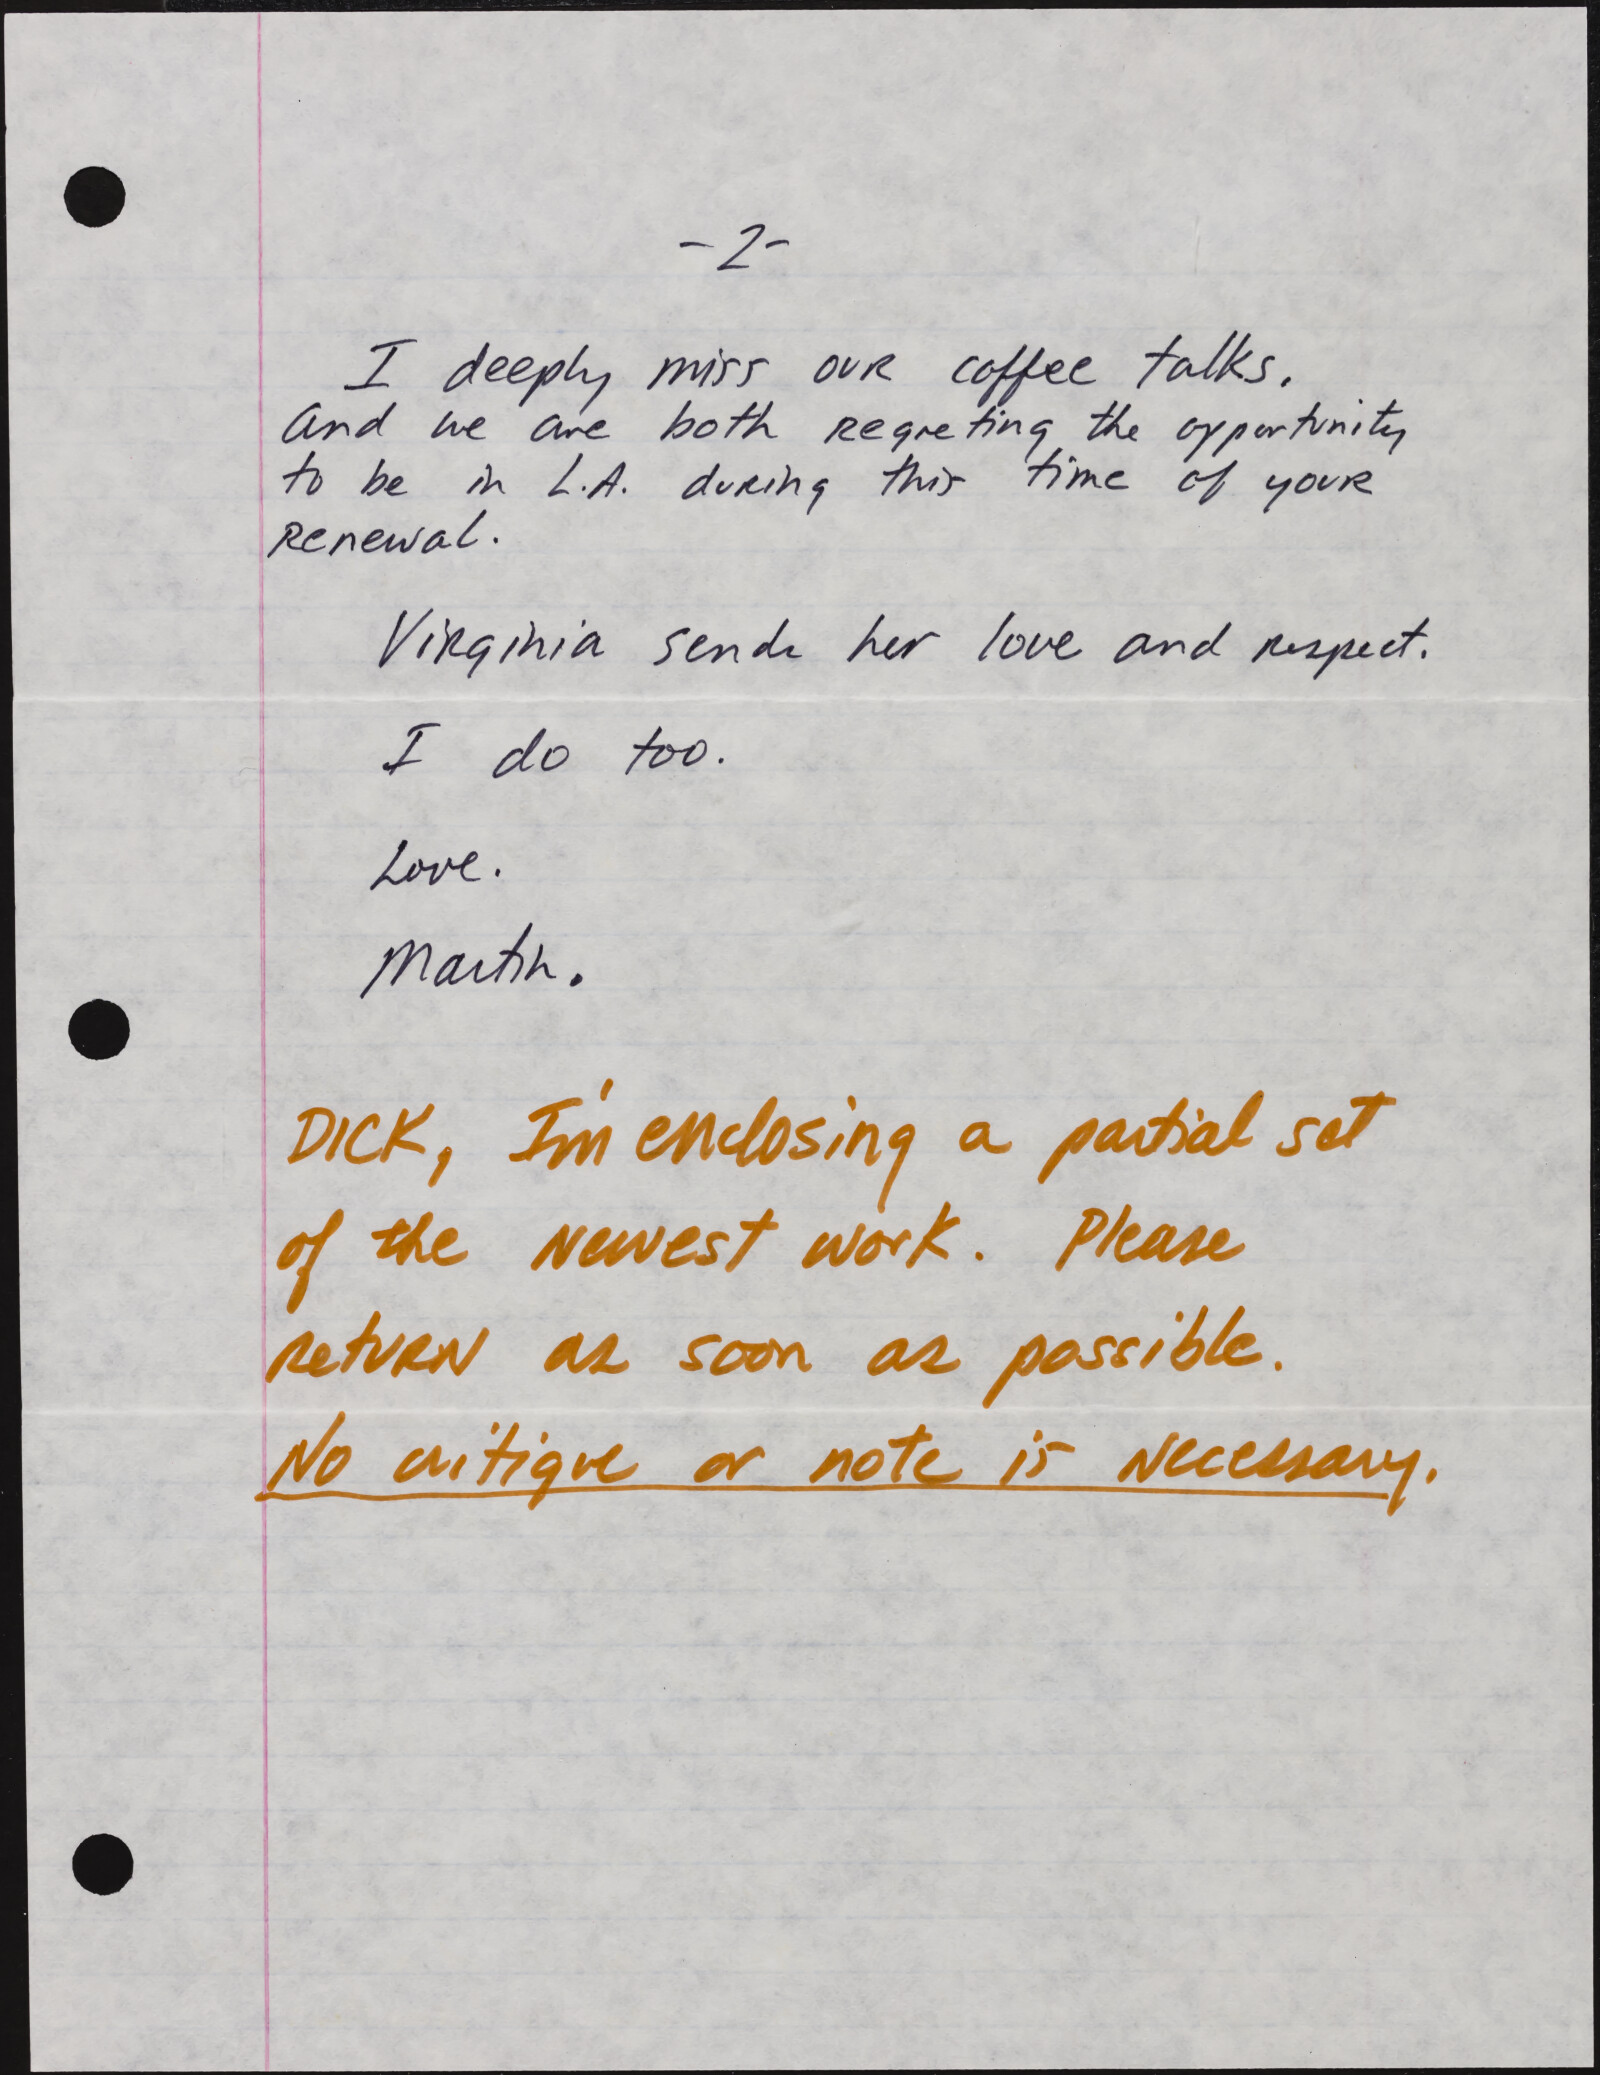 -2-
I deeply miss our coffee talks.
And we are both regreting the opportunity
to be in L.A. during this time of your
renewal.
Virginia sends her love and respect.
I do too.
Love.
Martin.
DICK, I'm enclosing a partial set
of the newest work. Please
return as soon as possible.
No critique or note is necessary.